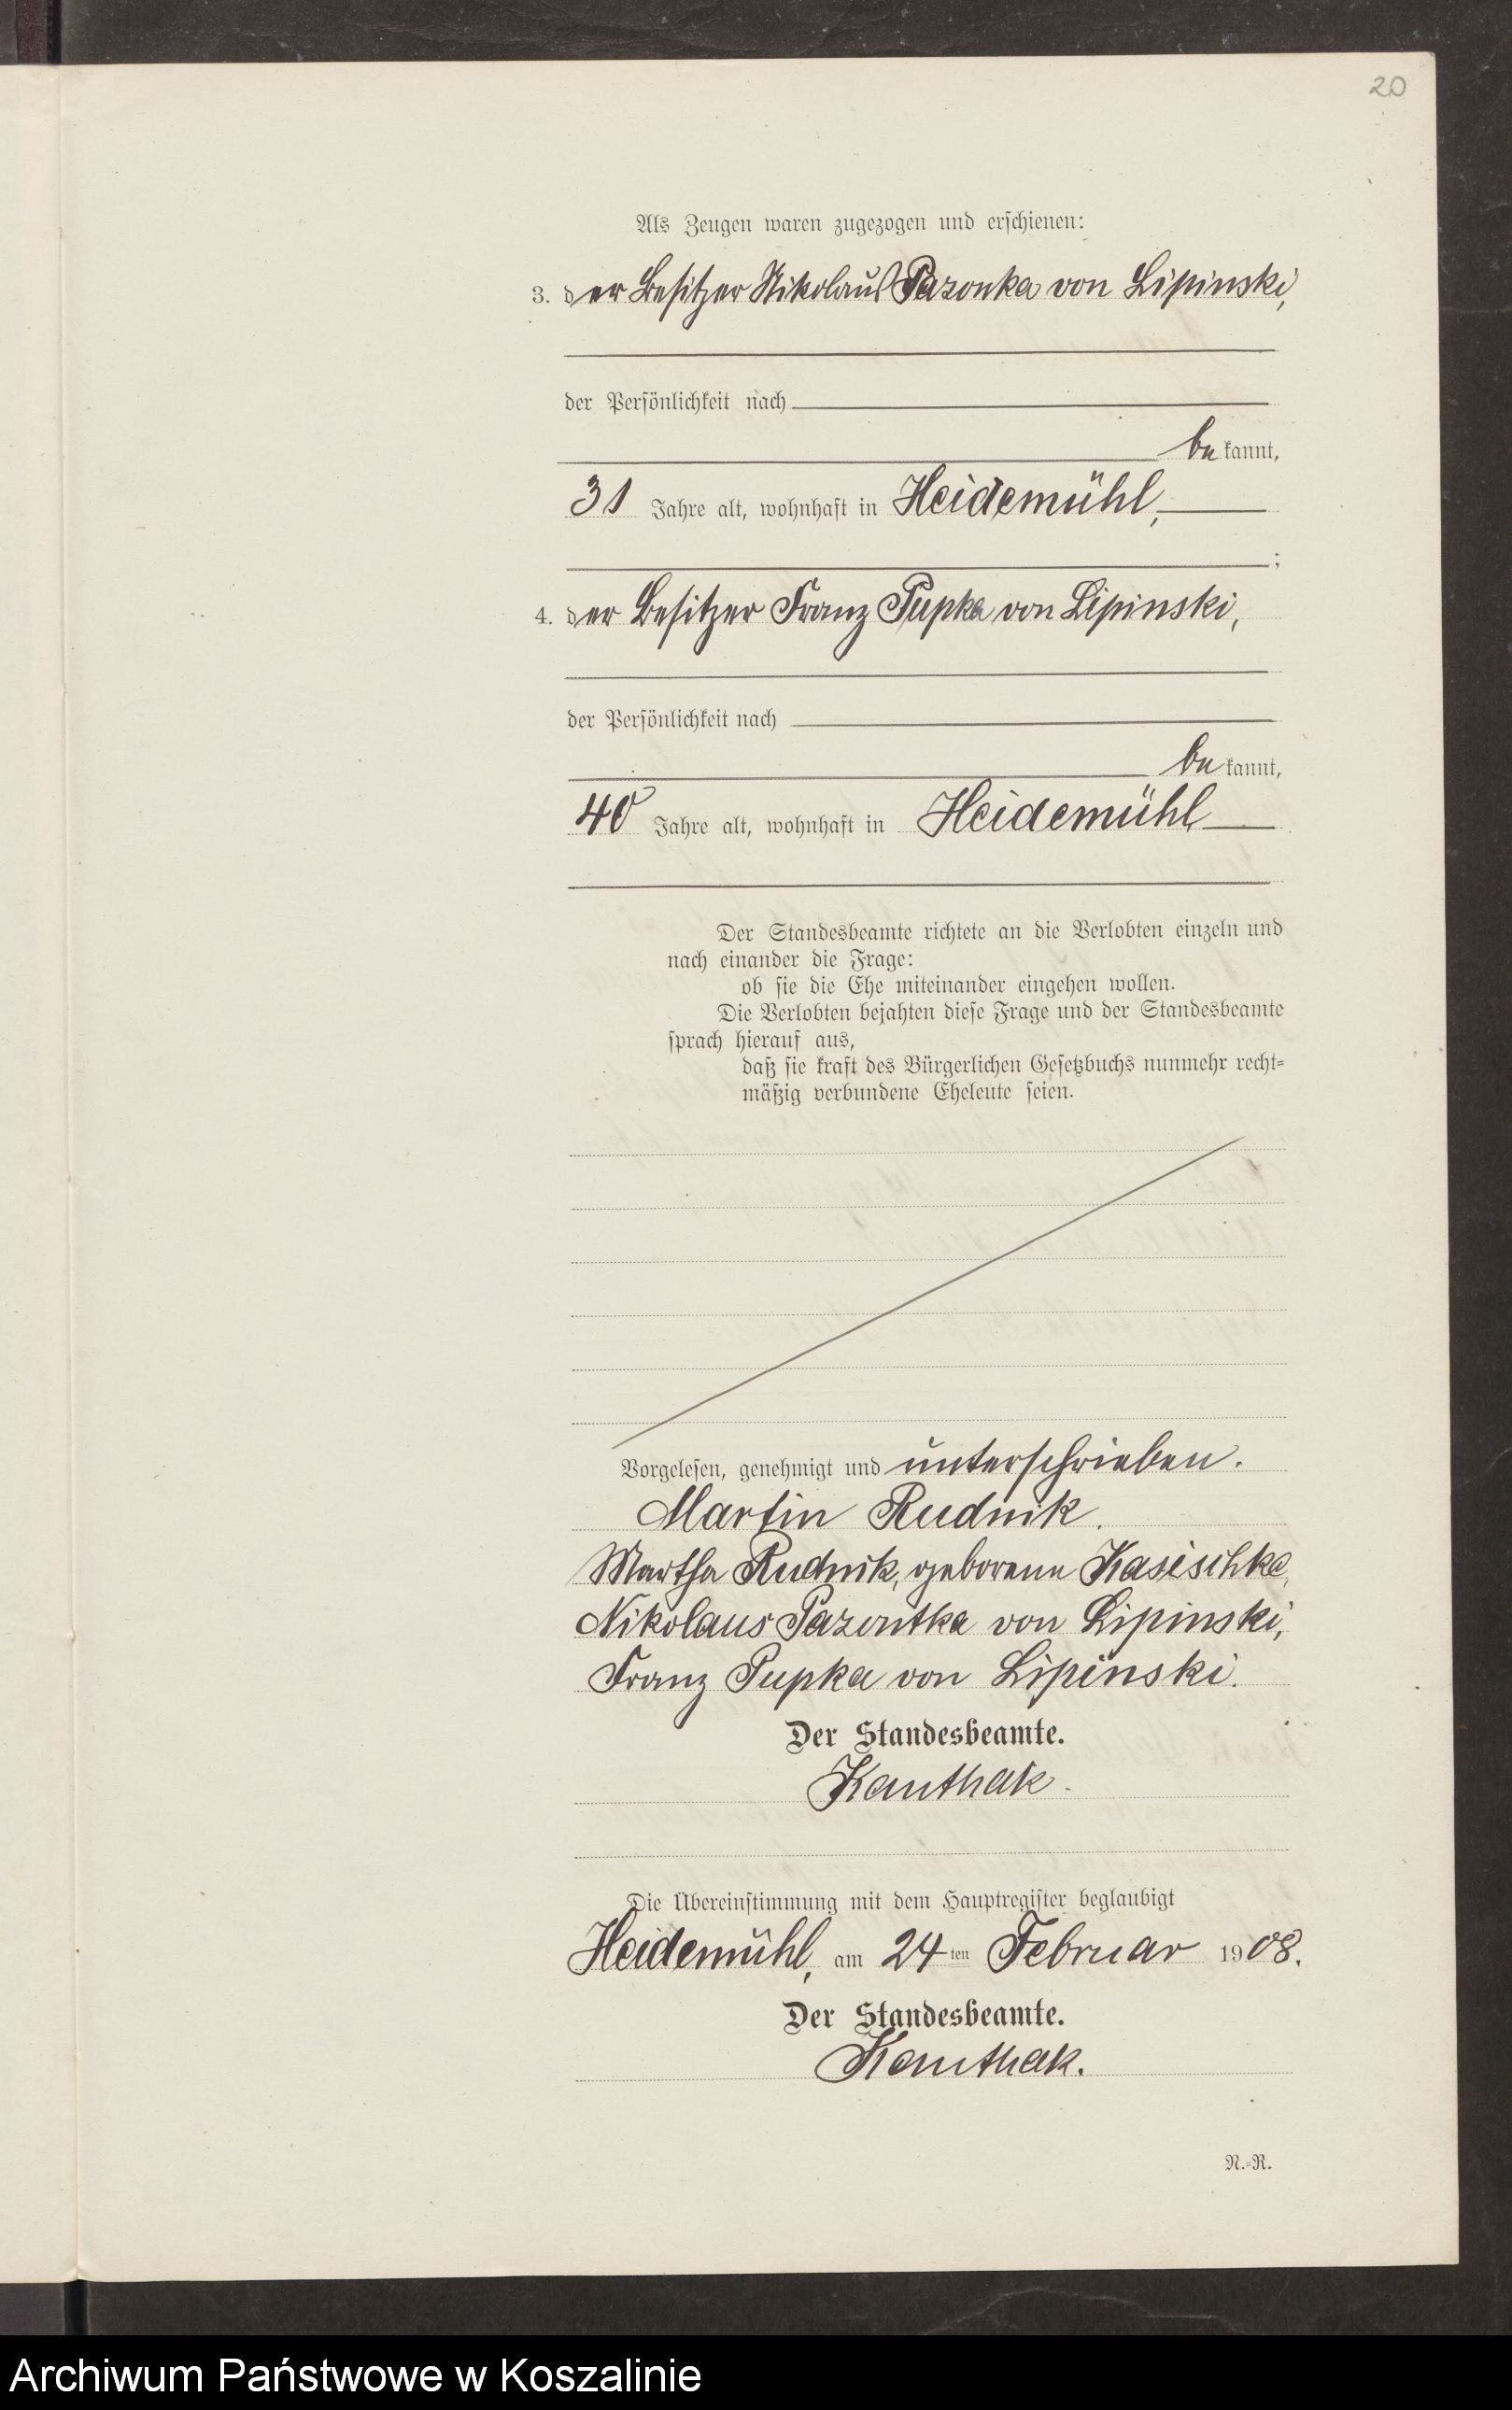 20
Als Zeugen waren zugezogen und erschienen:
3. der Besitzer Nikolaus Pazonka von Lipinski,
der Persönlichkeit nach
bekannt,
31 Jahre alt, wohnhaft in Heidemühl,
;
4. der Besitzer Franz Pupka von Lipinski,
der Persönlichkeit nach
bekannt,
40 Jahre alt, wohnhaft in Heidemühl
Der Standesbeamte richtete an die Verlobten einzeln und
nach einander die Frage:
ob sie die Ehe miteinander eingehen wollen.
Die Verlobten bejahten diese Frage und der Standesbeamte
sprach hierauf aus,
daß sie kraft des Bürgerlichen Gesetzbuchs nunmehr recht-
mäßig verbundene Eheleute seien.
Vorgelesen, genehmigt und unterschrieben.
Martin Rudnik.
Martha Rudnik, geborene Kasischke,
Nikolaus Pazontka von Lipinski,
Franz Pupka von Lipinski.
Der Standesbeamte.
Kanthak.
Die Übereinstimmung mit dem Hauptregister beglaubigt
Heidemühl, am 24ten Februar 1908.
Der Standesbeamte.
Kanthak.
N.-R.
Archiwum Państwowe w Koszalinie